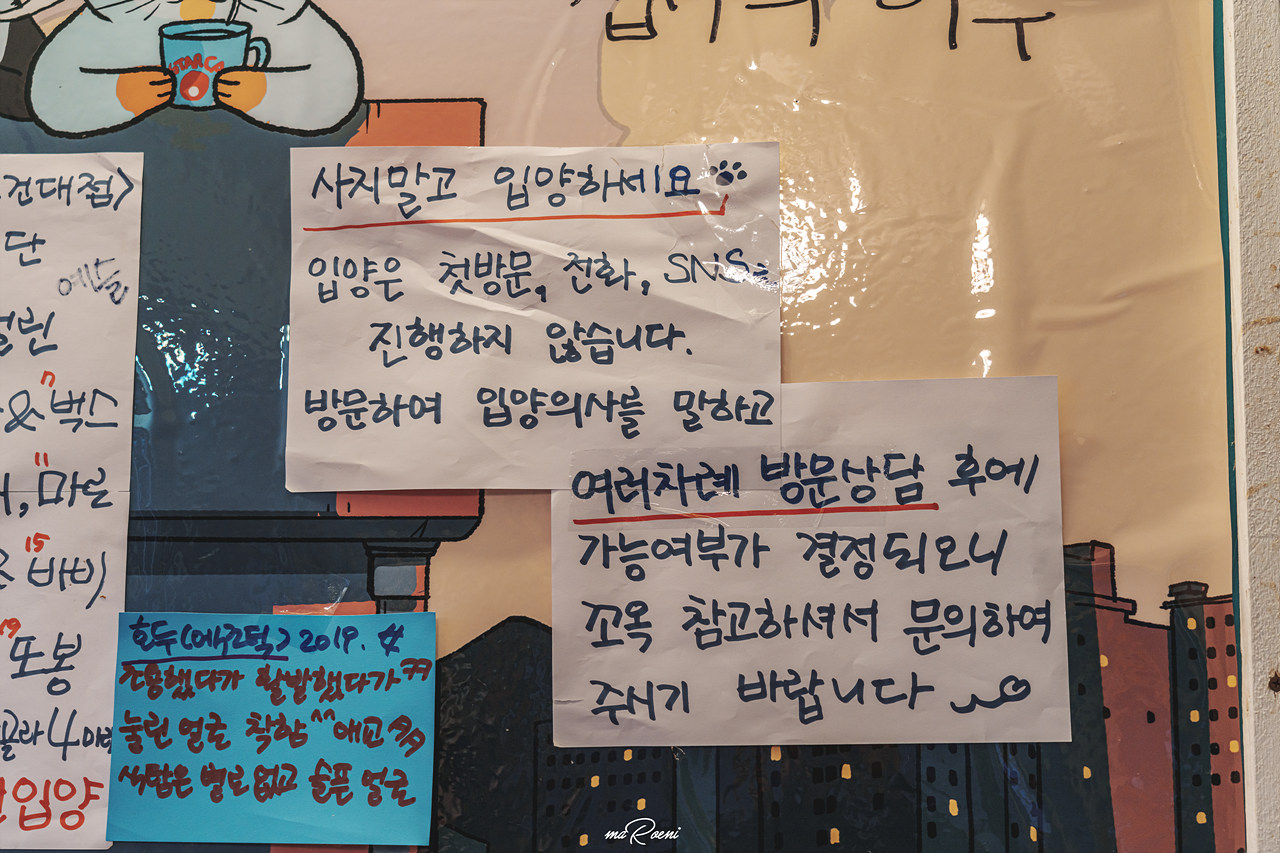 STARC
사지말고 입양하세요
입양은 첫방문, 전화, SNS는
진행하지 않습니다.
방문하여 입양의사를 말하고
여러차례 방문상담 후에
가능여부가 결정되오니
꼬옥 참고하셔서 문의하여
주시기 바랍니다
건대점>
단
예는
린
& "벅스
, "마루
15
"배비
19
또봉
골라 4마리
입양
호두(에구턱) 2019.
조용했다가 활발했다가 ㅋㅋ
눌린 얼굴 착함 ^^ 애교
사람은 별로 없고 슬픈 얼굴
maRoeni